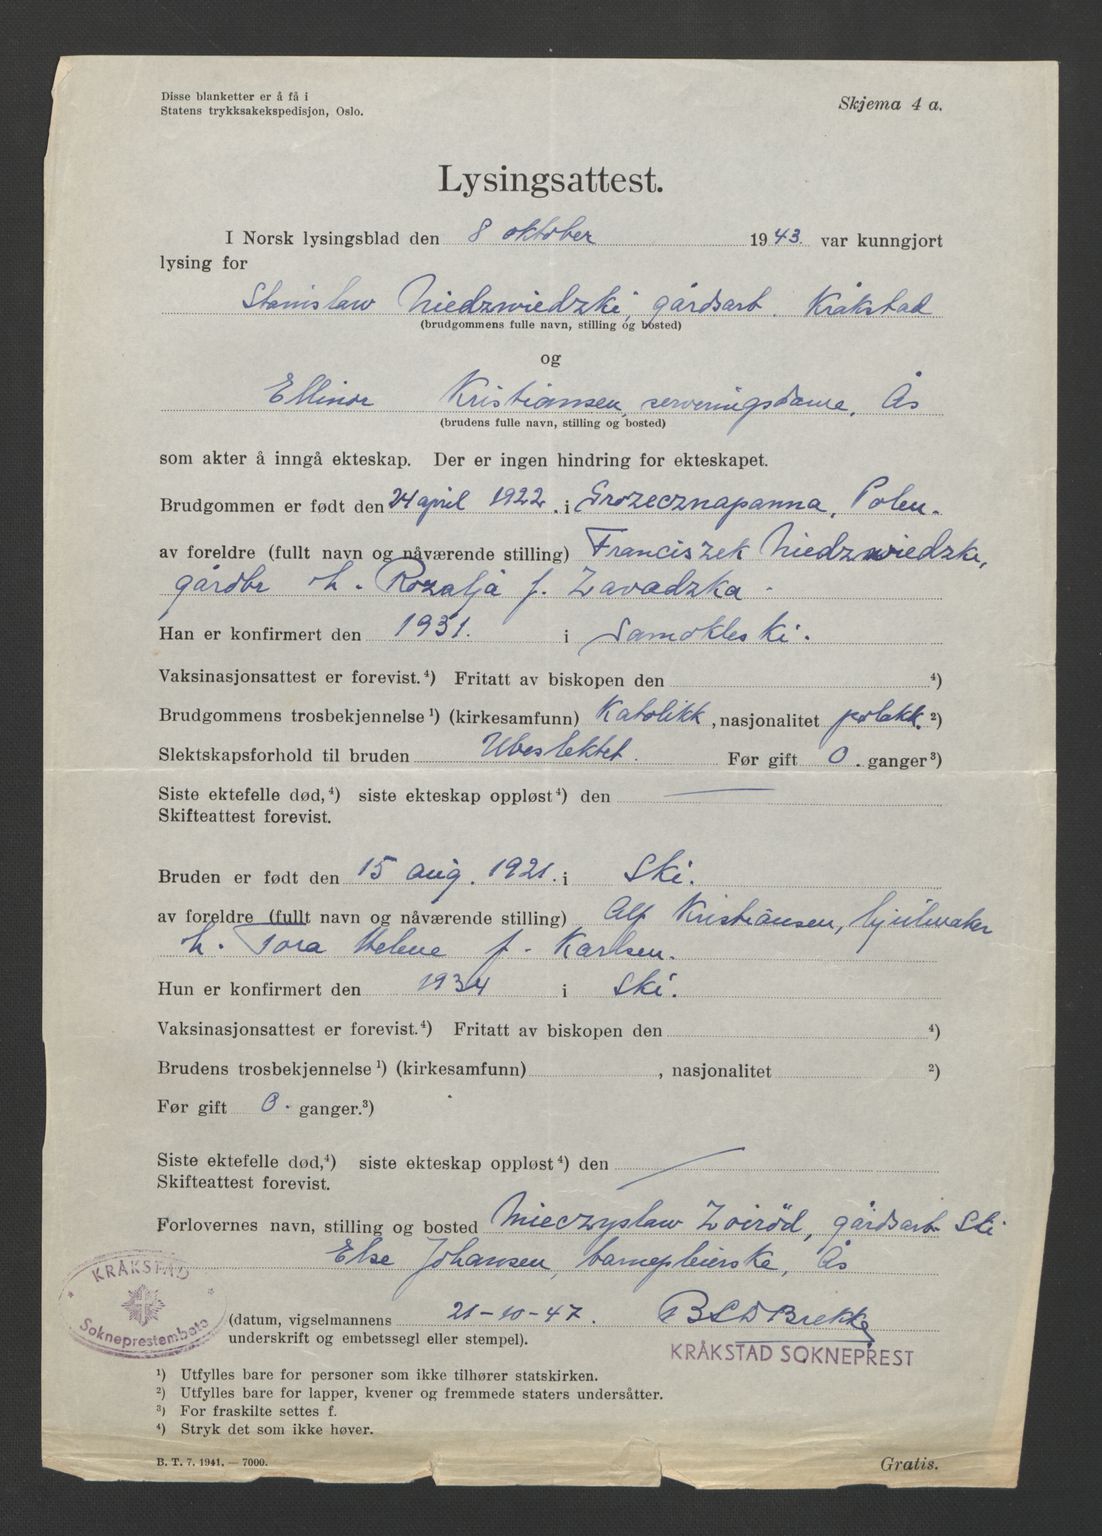 Disse blanketter er å få i
Statens trykksakekspedisjon, Oslo.
Skjema 4 a.
Lysingsattest.
I Norsk lysingsblad den 8 oktober 1943. var kunngjort
lysing for
Stanislaw Niedzwiedzki, gårdsarb. Kråkstad
(brudgommens fulle navn, stilling og bosted)
og
Ellinor Kristiansen, serveringsdame, Ås
(brudens fulle navn, stilling og bosted)
som akter å inngå ekteskap. Der er ingen hindring for ekteskapet.
Brudgommen er født den 24 april 1922. i Grozecznapanna, Polen.
av foreldre (fullt navn og nåværende stilling) Franciszek Niedzwiedzki,
gårdbr h. Rozalja f. Zavadzka.
Han er konfirmert den 1931. i Samokleski.
Vaksinasjonsattest er forevist.⁴) Fritatt av biskopen den ⁴)
Brudgommens trosbekjennelse ¹) (kirkesamfunn) Katolikk, nasjonalitet polakk. ²)
Slektskapsforhold til bruden Ubeslektet. Før gift 0. ganger ³)
Siste ektefelle død,⁴) siste ekteskap oppløst ⁴) den —
Skifteattest forevist.
Bruden er født den 15 aug. 1921. i Ski.
av foreldre (fullt navn og nåværende stilling) Alf Kristiansen, hjulmaker
h. Tora Helene f. Karlsen.
Hun er konfirmert den 1934 i Ski.
Vaksinasjonsattest er forevist.⁴) Fritatt av biskopen den ⁴)
Brudens trosbekjennelse ¹) (kirkesamfunn) , nasjonalitet ²)
Før gift 0. ganger.³)
Siste ektefelle død,⁴) siste ekteskap oppløst ⁴) den —
Skifteattest forevist.
Forlovernes navn, stilling og bosted Mieczyslaw Zoiröd, gårdsarb. Ski
Else Johansen, barnepleierske, Ås
KRÅKSTAD
Sokneprestembete
(datum, vigselmannens 21-10-47. Brekke
underskrift og embetssegl eller stempel).
KRÅKSTAD SOKNEPREST
¹) Utfylles bare for personer som ikke tilhører statskirken.
²) Utfylles bare for lapper, kvener og fremmede staters undersåtter.
³) For fraskilte settes f.
⁴) Stryk det som ikke høver.
B. T. 7. 1941. — 7000.
Gratis.